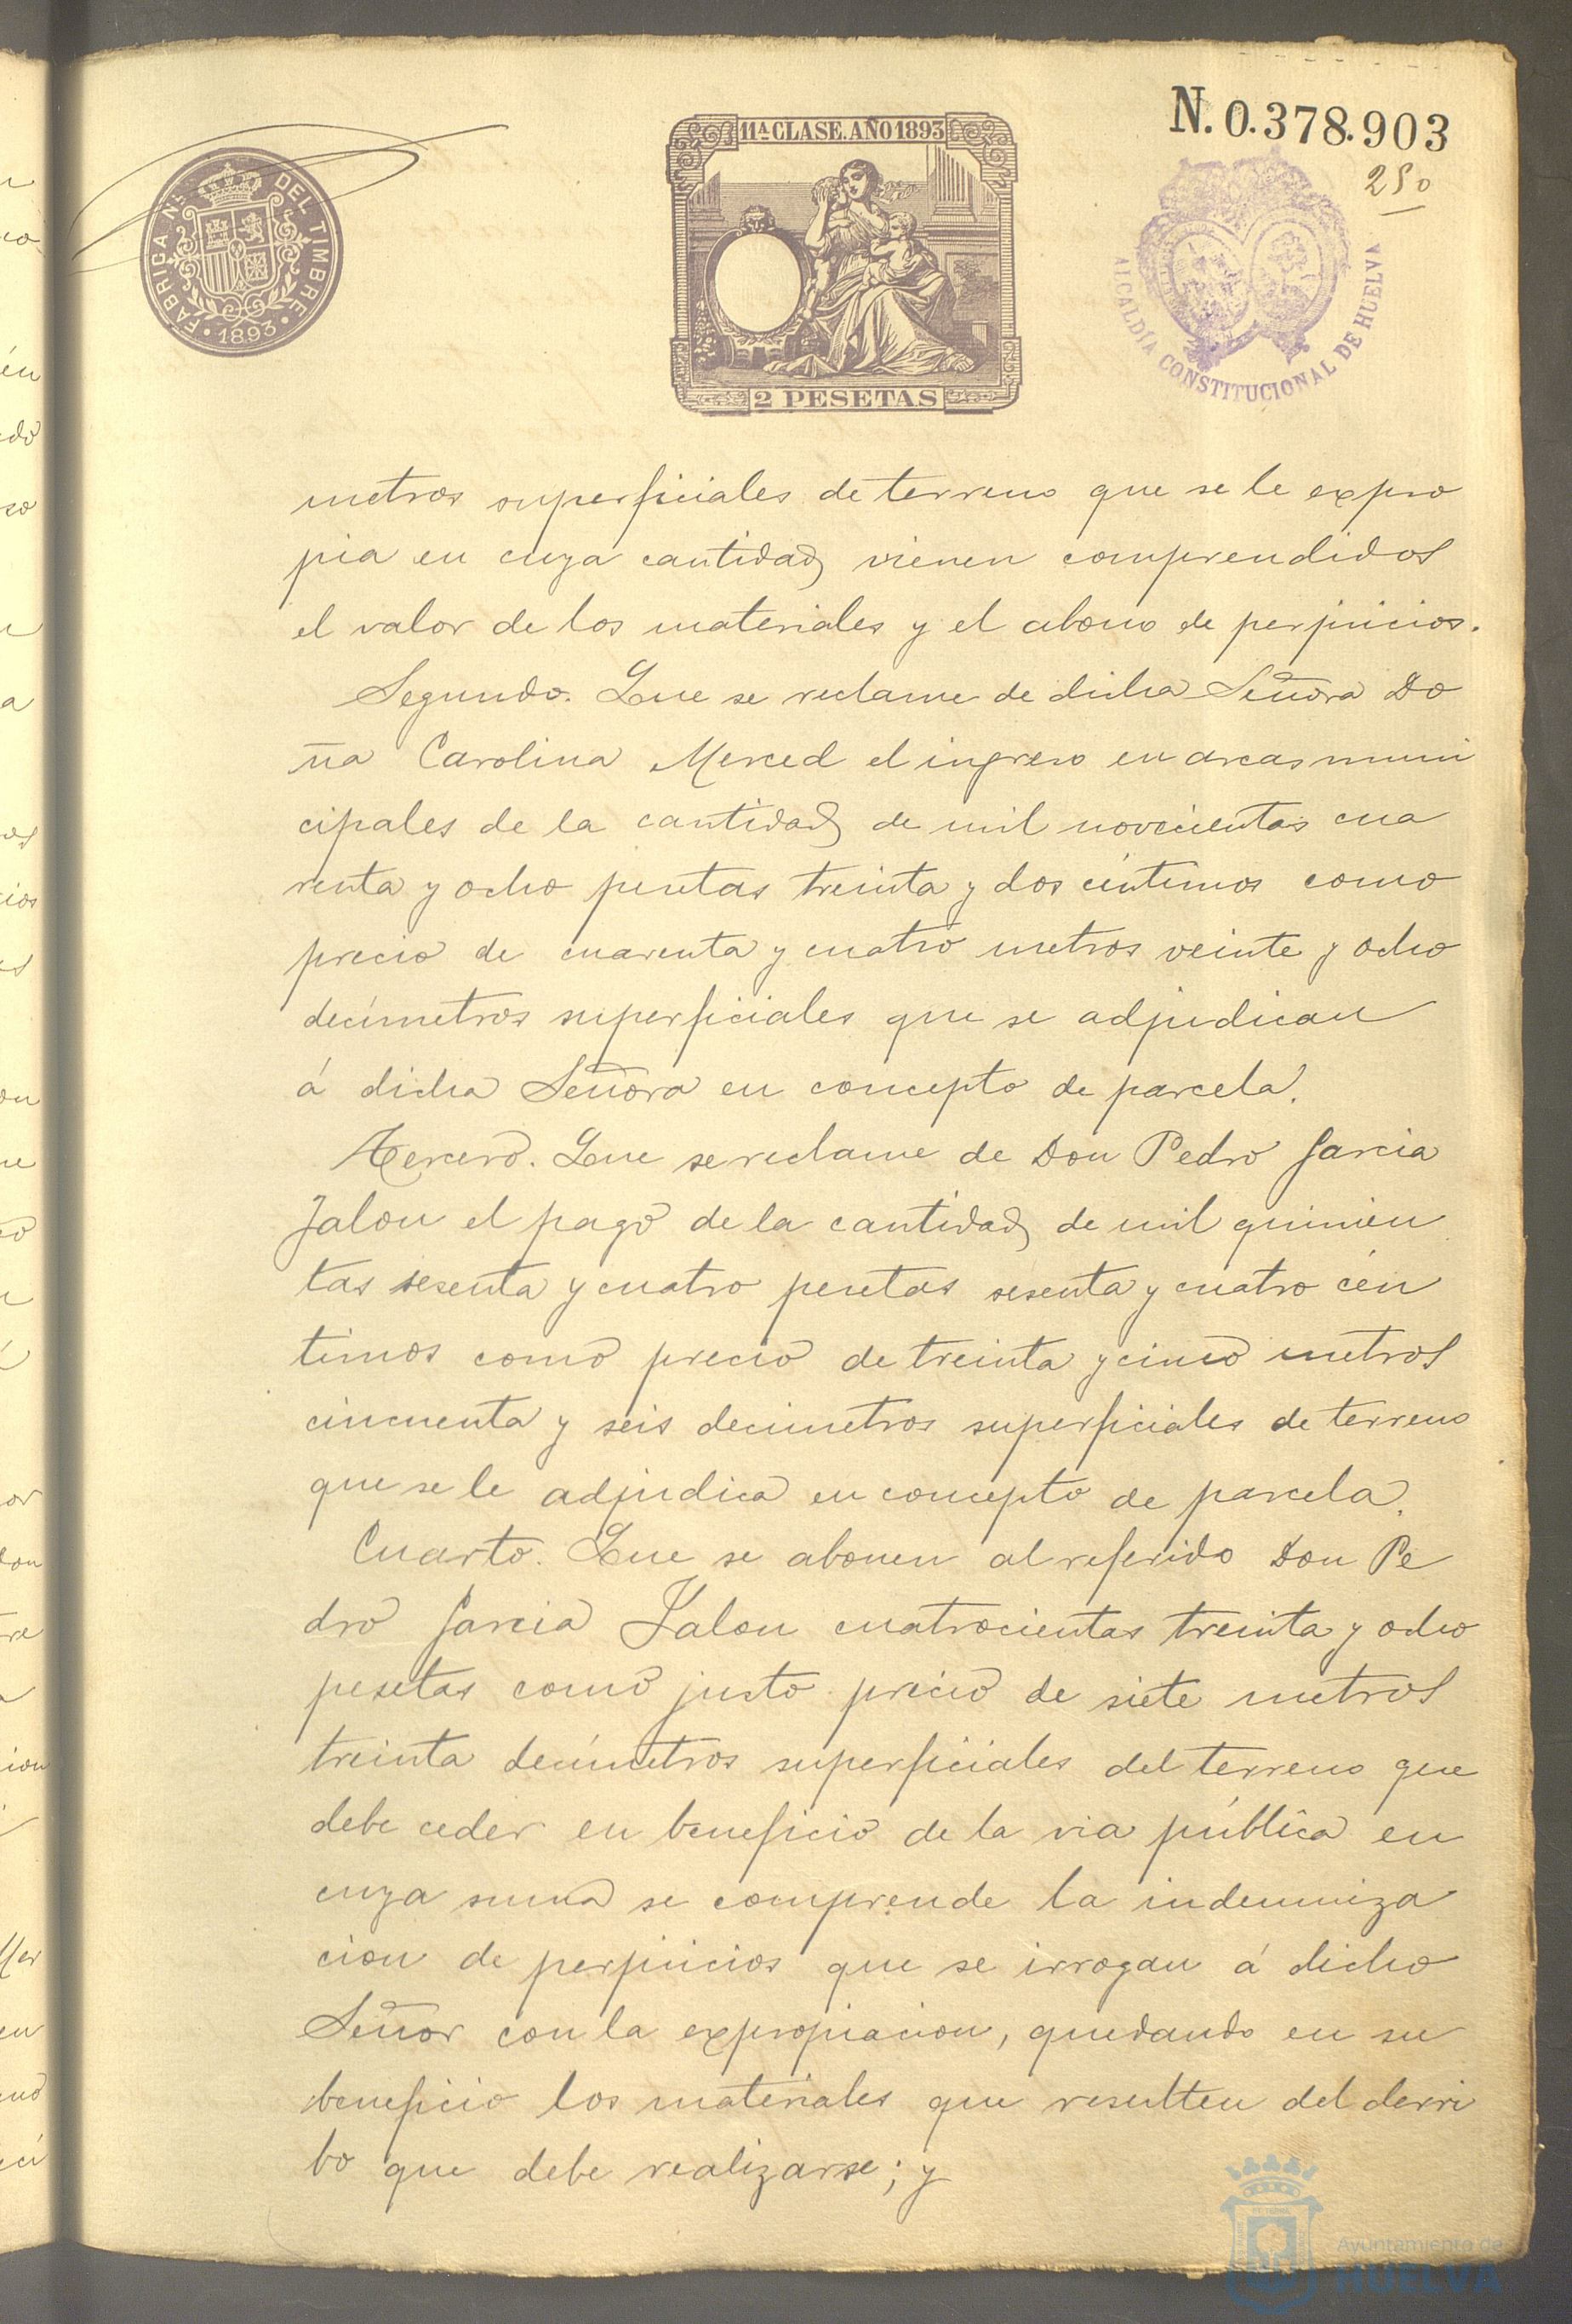 N. 0.378.903
250
11ª CLASE. AÑO 1893
FABRICA Nº DEL TIMBRE
1893
2 PESETAS
ALCALDÍA CONSTITUCIONAL DE HUELVA
metros superficiales de terreno que se le expro
pia en cuya cantidad vienen comprendidos
el valor de los materiales y el abono de perjuicios.
Segundo. Que se reclame de dicha Señora Do
ña Carolina Merced el ingreso en arcas muni
cipales de la cantidad de mil novecientas cua
renta y ocho pesetas treinta y dos céntimos como
precio de cuarenta y cuatro metros veinte y ocho
decímetros superficiales que se adjudican
á dicha Señora en concepto de parcela.
Tercero. Que se reclame de Don Pedro Garcia
Jalon el pago de la cantidad de mil quinien
tas sesenta y cuatro pesetas sesenta y cuatro cén
timos como precio de treinta y cinco metros
cincuenta y seis decimetros superficiales de terreno
que se le adjudica en concepto de parcela.
Cuarto. Que se abonen al referido Don Pe
dro Garcia Jalon cuatrocientas treinta y ocho
pesetas como justo precio de siete metros
treinta decímetros superficiales del terreno que
debe ceder en beneficio de la via pública en
cuya suma se comprende la indemniza
cion de perjuicios que se irrogan á dicho
Señor con la expropiacion, quedando en su
beneficio los materiales que resulten del derri
bo que debe realizarse; y
Ayuntamiento de
HUELVA